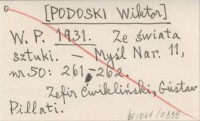 [PODOSKI Wiktor]
W. P. 1931. Ze świata
sztuki. — Myśl Nar. 11,
nr 50: 261-262.
Zefir Ćwikliński, Gustaw
Pillati.